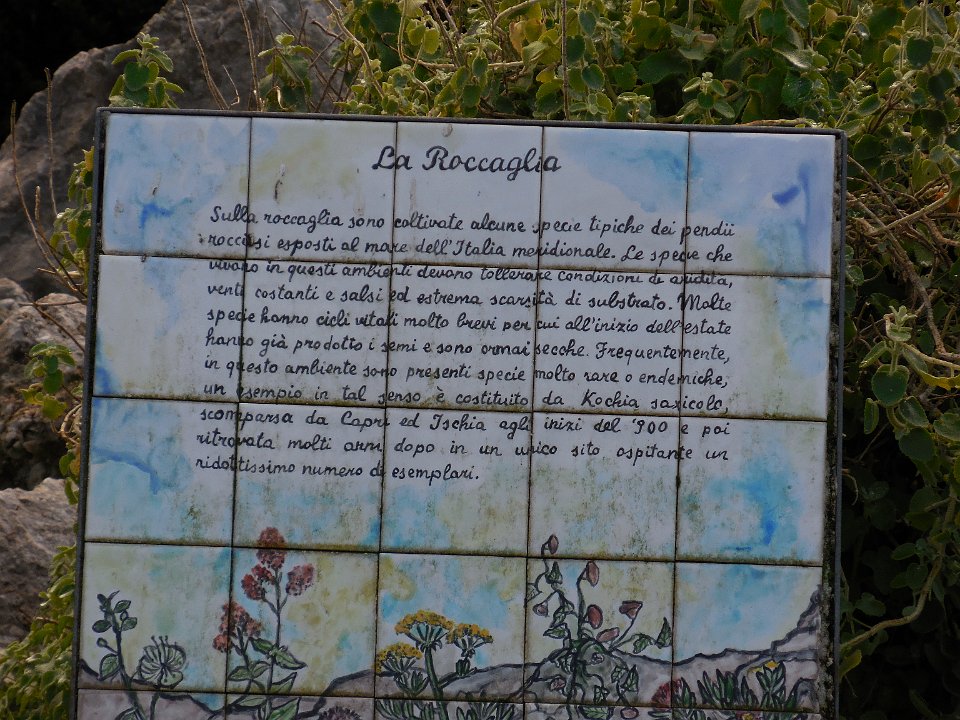 La Roccaglia
Sulla roccaglia sono coltivate alcune specie tipiche dei pendii
rocciosi esposti al mare dell'Italia meridionale. Le specie che
vivono in questi ambienti devono tollerare condizioni di aridità,
venti costanti e salsi ed estrema scarsità di substrato. Molte
specie hanno cicli vitali molto brevi per cui all'inizio dell'estate
hanno già prodotto i semi e sono ormai secche. Frequentemente,
in questo ambiente sono presenti specie molto rare o endemiche;
un esempio in tal senso è costituito da Kochia saxicola,
scomparsa da Capri ed Ischia agli inizi del '900 e poi
ritrovata molti anni dopo in un unico sito ospitante un
ridottissimo numero di esemplari.